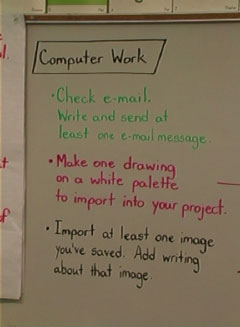 Computer Work
• Check e-mail.
Write and send at
least one e-mail message.
• Make one drawing
on a white palette
to import into your project.
• Import at least one image
you've saved. Add writing
about that image.